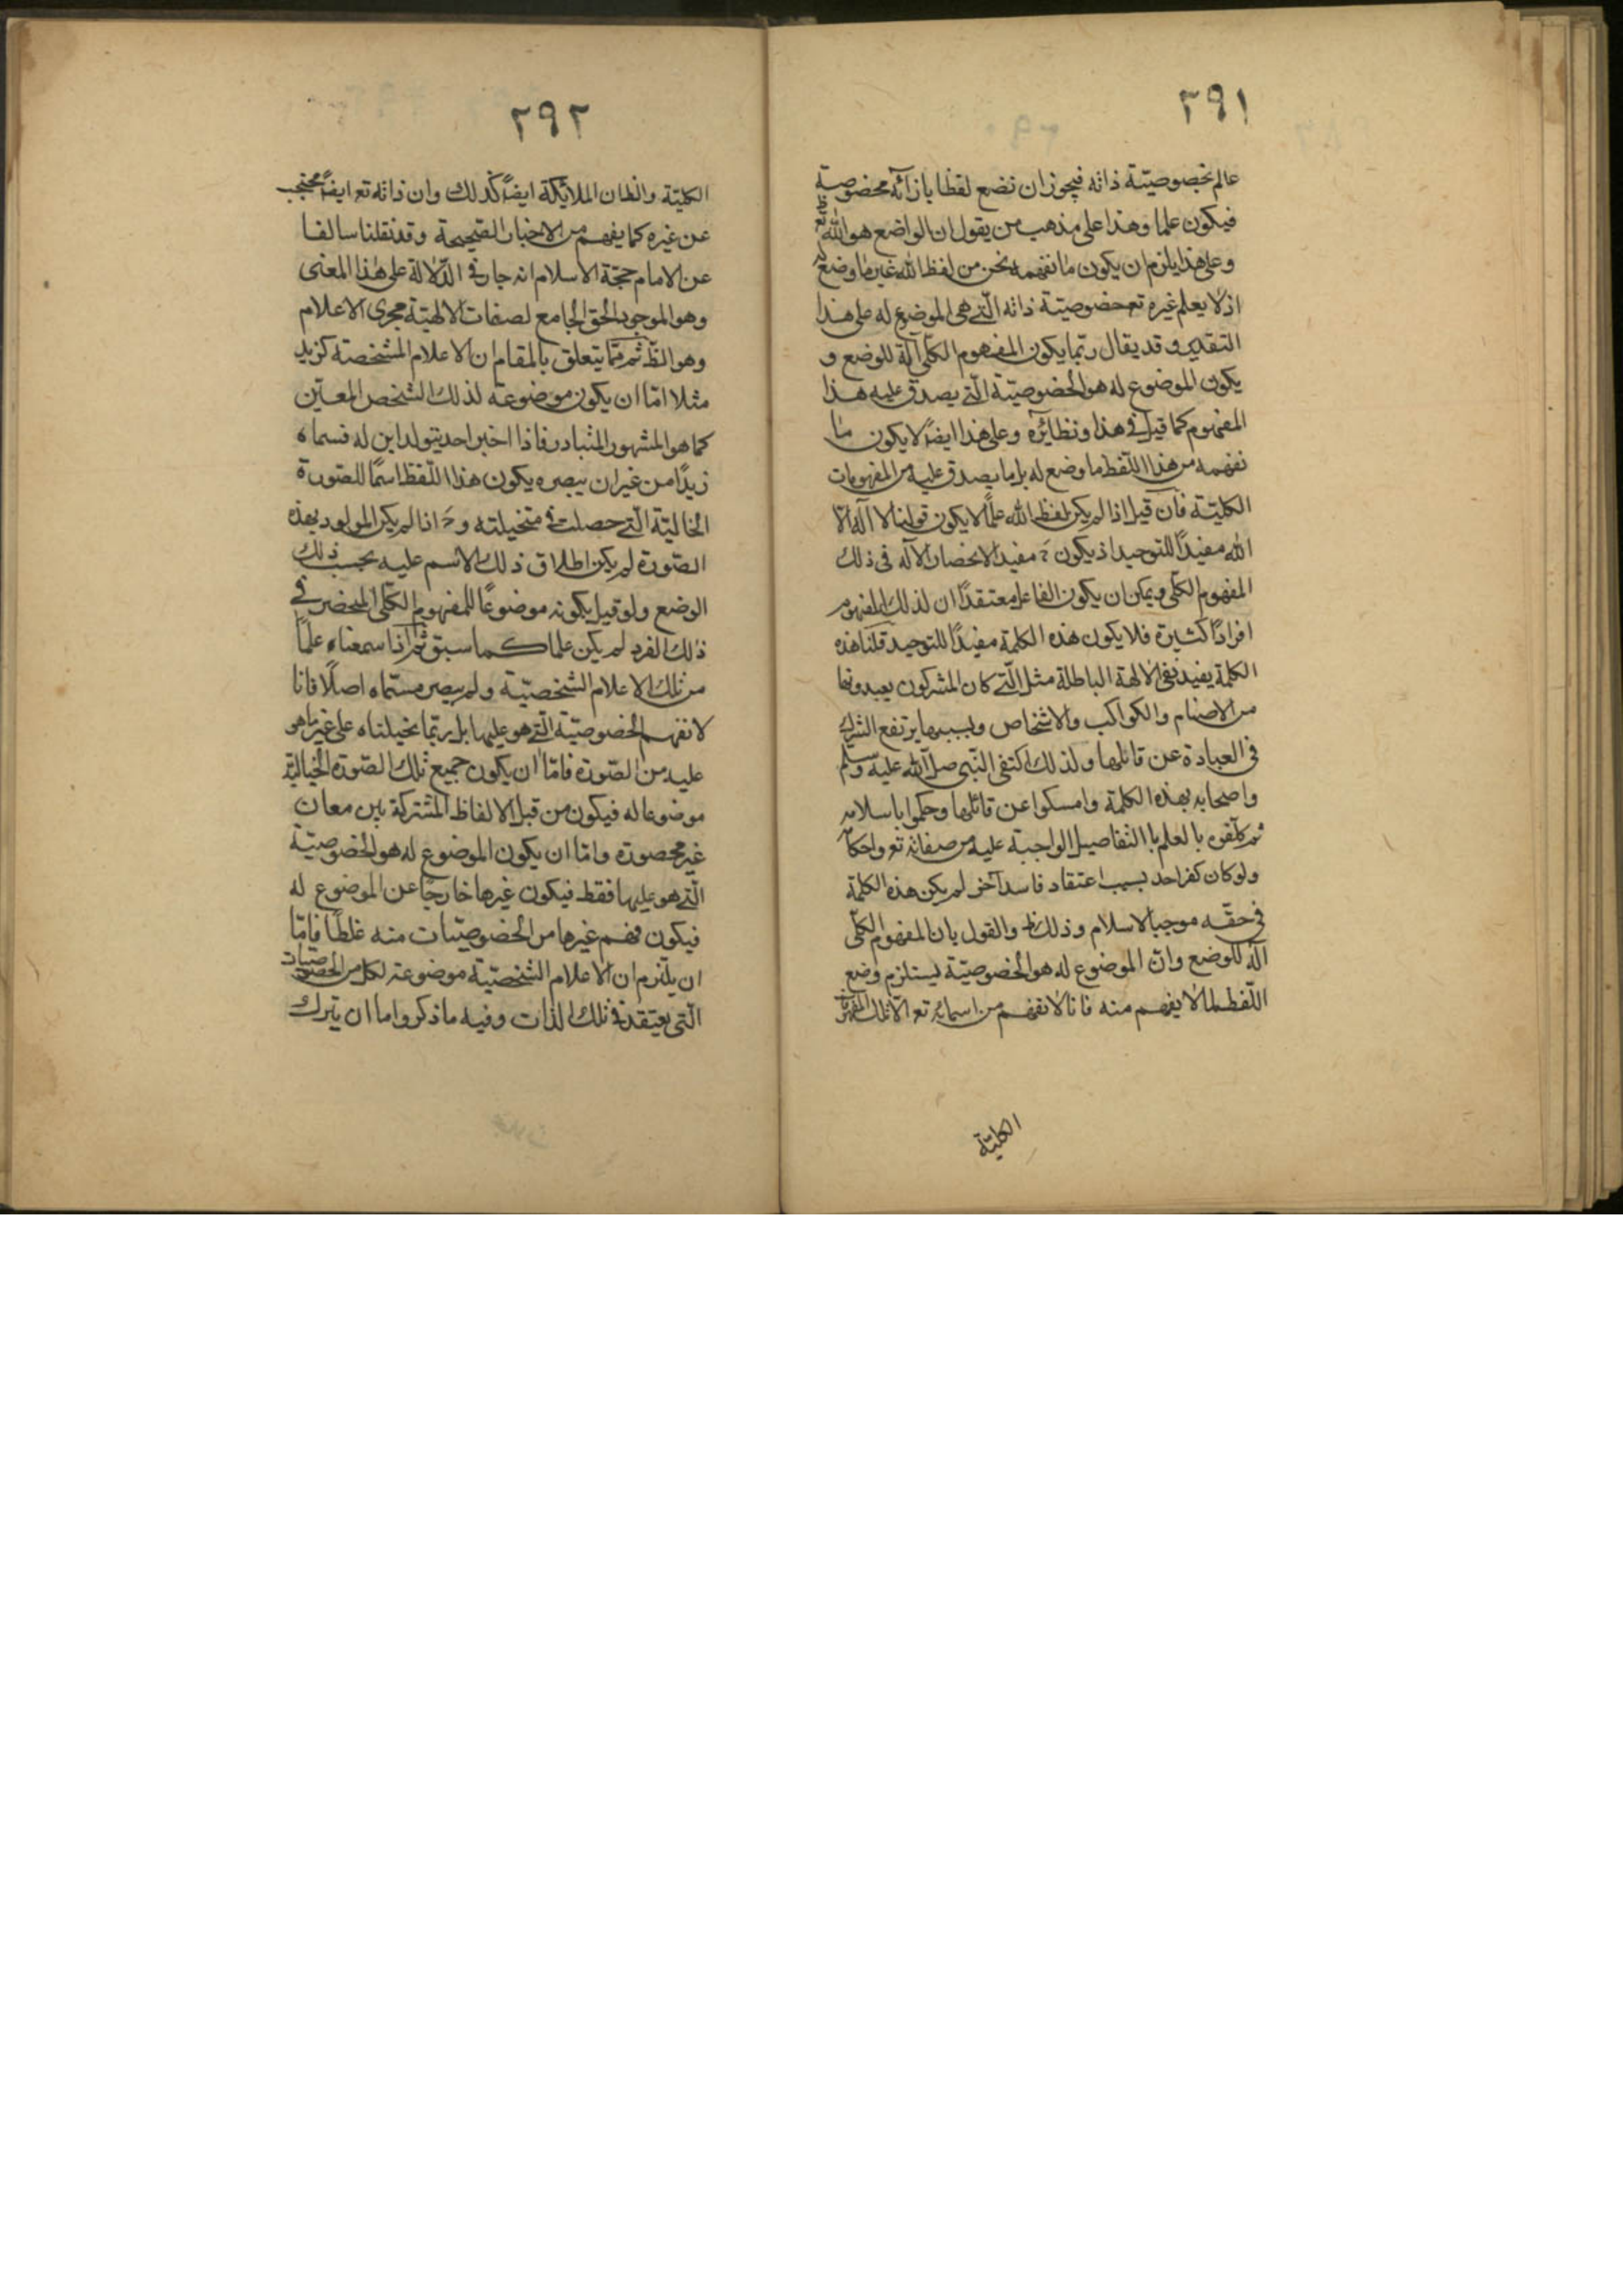 ٢٩١
عالم بخصوصيّة ذاته فيجوز ان نضع لفظا بازائه مخصوصية
فيكون علما وهذا على مذهب من يقول ان الواضع هو الله تع
وعلى هذا يلزم ان يكون ما نفهمه نحن من لفظ الله غير ما وضع له
اذ لا يعلم غيره تع خصوصيّة ذاته الّتى هى الموضوع له على هذا
التقدير وقد يقال ربّما يكون المفهوم الكلّى آلة للوضع و
يكون الموضوع له هو الخصوصيّة الّتى يصدق عليه هذا
المفهوم كما قيل فى هذا ونظائره وعلى هذا ايضًا لا يكون ما
نفهمه من هذا اللّفظ ما وضع له بل ما يصدق عليه من المفهومات
الكليّة فان قيل اذا لم يكن لفظ الله علمًا لا يكون قولنا لا آله الّا
الله مفيدًا للتوحيد اذ يكون ح مفيد الانحصار الآله فى ذلك
المفهوم الكلّى ويمكن ان يكون القائل معتقدًا ان لذلك المفهوم
افرادًا كثيرة فلا يكون هذه الكلمة مفيدًا للتوحيد قلنا هذه
الكلمة يفيد نفى الالهة الباطلة مثل الّتى كان المشركون يعبدونها
من الاصنام والكواكب والاشخاص وبسببها يرتفع الشرك
فى العبادة عن قائلها ولذلك اكتفى النّبى صلّى الله عليه وسلّم
واصحابه بهذه الكلمة وامسكوا عن قائلها وحكموا باسلامه
ثم كلّفوه بالعلم با التفاصيل الواجبة عليه من صفاته تع واحكامه
ولو كان كفر احد بسبب اعتقاد فاسد آخر لم يكن هذه الكلمة
فى حقّه موجبا لاسلام وذلك ظ والقول بان المفهوم الكلّى
آلة للوضع وانّ الموضوع له هو الخصوصيّة ليستلزم وضع
اللّفظ لما لا يفهم منه فانا لا نفهم من اسمائه تع الّا تلك المفهومات
الكليّة
٢٩٢
الكليّة والظان الملايكة ايضًا كذلك وان ذاته تع ايضًا محتجب
عن غيره كما يفهم من الاخبار الصّحيحة وقد نقلنا سالفا
عن الامام حجّة الاسلام انه جار فى الدّلالة على هذا المعنى
وهو الموجود الحق الجامع لصفات الالهيّة مجرى الاعلام
وهو الظّ ثم ممّا يتعلق بالمقام ان الاعلام المشخّصة كزيد
مثلا امّا ان يكون موضوعة لذلك الشخص المعيّن
كما هو المشهور المتبادر فاذا اخبر احد بتولد ابن له فسماه
زيدًا من غير ان يبصره يكون هذا اللّفظ اسمًا للصّورة
الخالية الّتى حصلت فى متخيلته وح اذا لم يكن المولود بهذه
الصّورة لم يكن اطلاق ذلك الاسم عليه بحسب ذلك
الوضع ولو قيل بكونه موضوعًا للمفهوم الكلّى المنحصر فى
ذلك الفرد لم يكن علما كما سبق ثم انا سمعناه علمًا
من تلك الاعلام الشخصيّة ولم يبصر مسمّاه اصلًا فانا
لا نفهم الخصوصيّة الّتى هو عليها بل ربّما نخيلناه على غير ما هو
عليه من الصّورة فامّا ان يكون جميع تلك الصّورة الخياليّة
موضوعا له فيكون من قبل الالفاظ المشتركة بين معان
غير محصورة وامّا ان يكون الموضوع له هو الخصوصيّة
الّتى هو عليها فقط فيكون غيرها خارجًا عن الموضوع له
فيكون فهم غيرها من الخصوصيّات منه غلطًا فامّا
ان يلتزم ان الاعلام الشخصيّة موضوعة لكل من الخصوصيات
الّتى يعتقد فى تلك الذات وفيه ما ذكر واما ان يترك